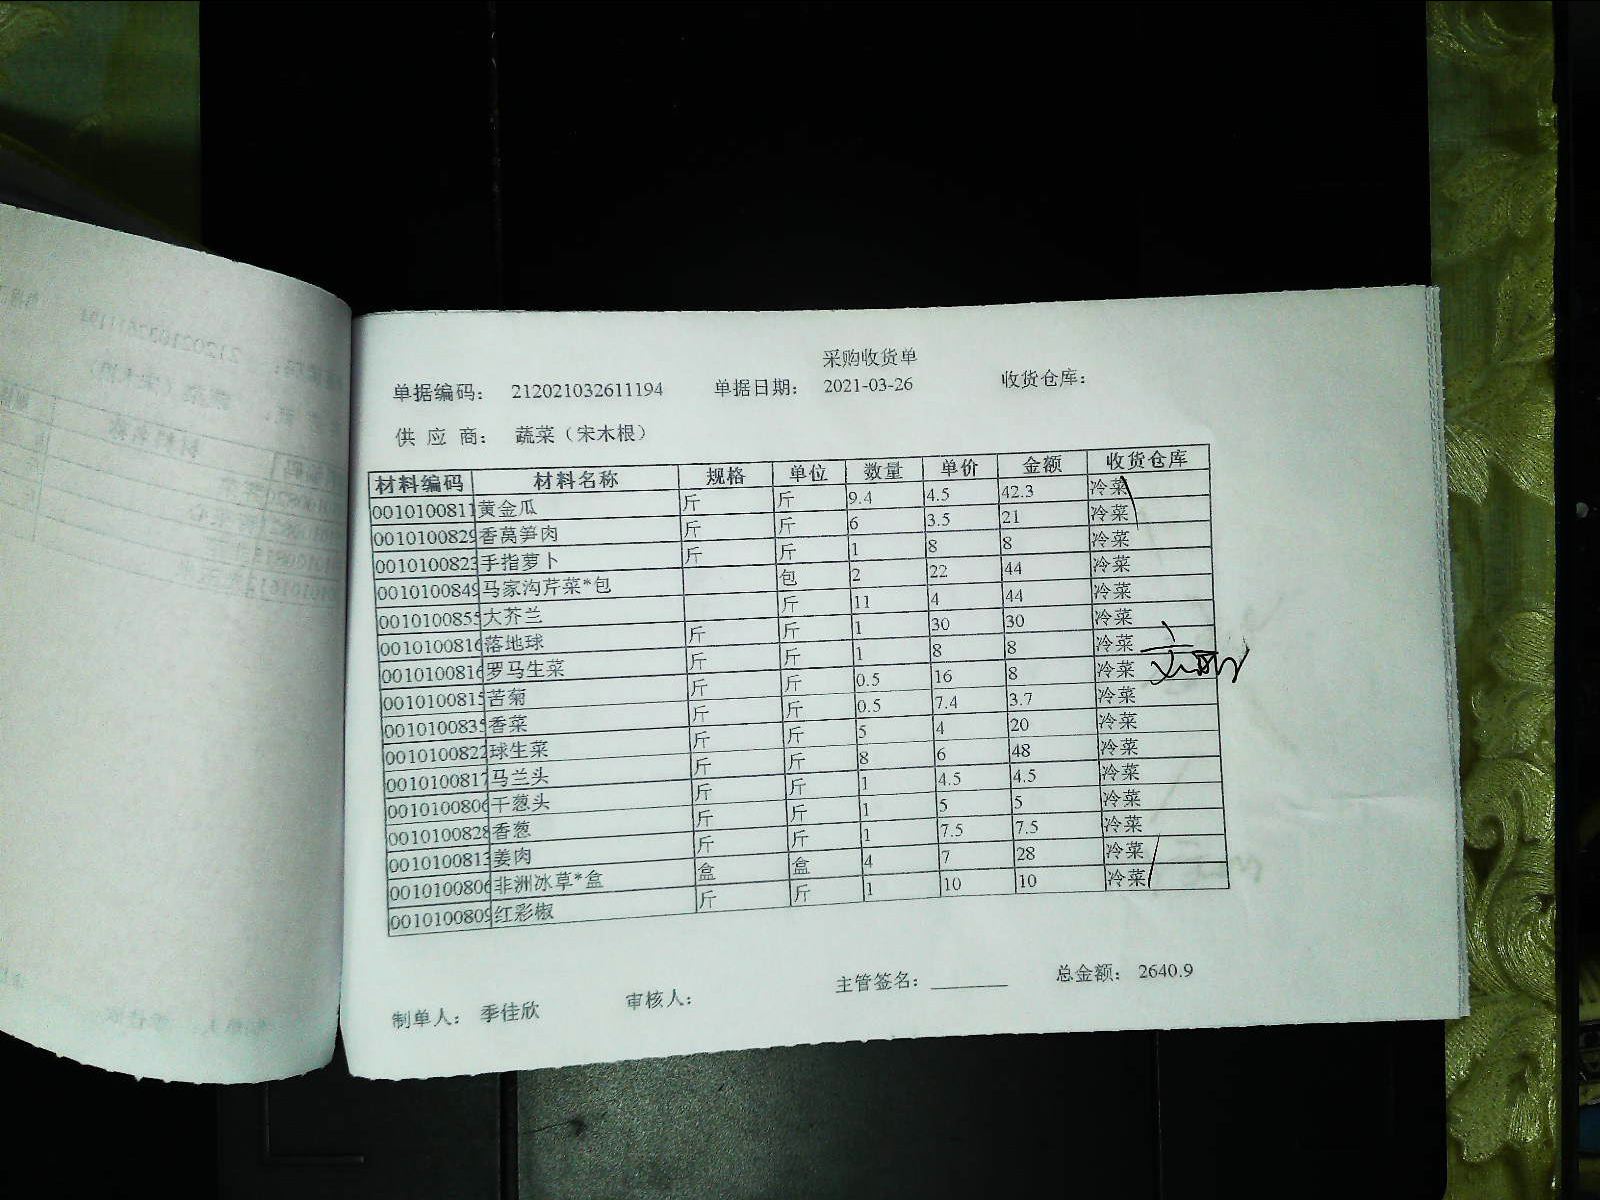 采购收货单
单据编码: 212021032611194 单据日期: 2021-03-26 收货仓库:
供 应 商: 蔬菜（宋木根）
材料编码 材料名称 规格 单位 数量 单价 金额 收货仓库
0010100811 黄金瓜 斤 斤 9.4 4.5 42.3 冷菜
0010100829 香莴笋肉 斤 斤 6 3.5 21 冷菜
0010100823 手指萝卜 斤 斤 1 8 8 冷菜
0010100849 马家沟芹菜*包 包 2 22 44 冷菜
0010100855 大芥兰 斤 11 4 44 冷菜
0010100816 落地球 斤 斤 1 30 30 冷菜
0010100816 罗马生菜 斤 斤 1 8 8 冷菜
0010100815 苦菊 斤 斤 0.5 16 8 冷菜
0010100835 香菜 斤 斤 0.5 7.4 3.7 冷菜
0010100822 球生菜 斤 斤 5 4 20 冷菜
0010100817 马兰头 斤 斤 8 6 48 冷菜
0010100806 干葱头 斤 斤 1 4.5 4.5 冷菜
0010100828 香葱 斤 斤 1 5 5 冷菜
0010100813 姜肉 斤 斤 1 7.5 7.5 冷菜
0010100806 非洲冰草*盒 盒 盒 4 7 28 冷菜
0010100809 红彩椒 斤 斤 1 10 10 冷菜
制单人: 季佳欣 审核人: 主管签名: 总金额: 2640.9